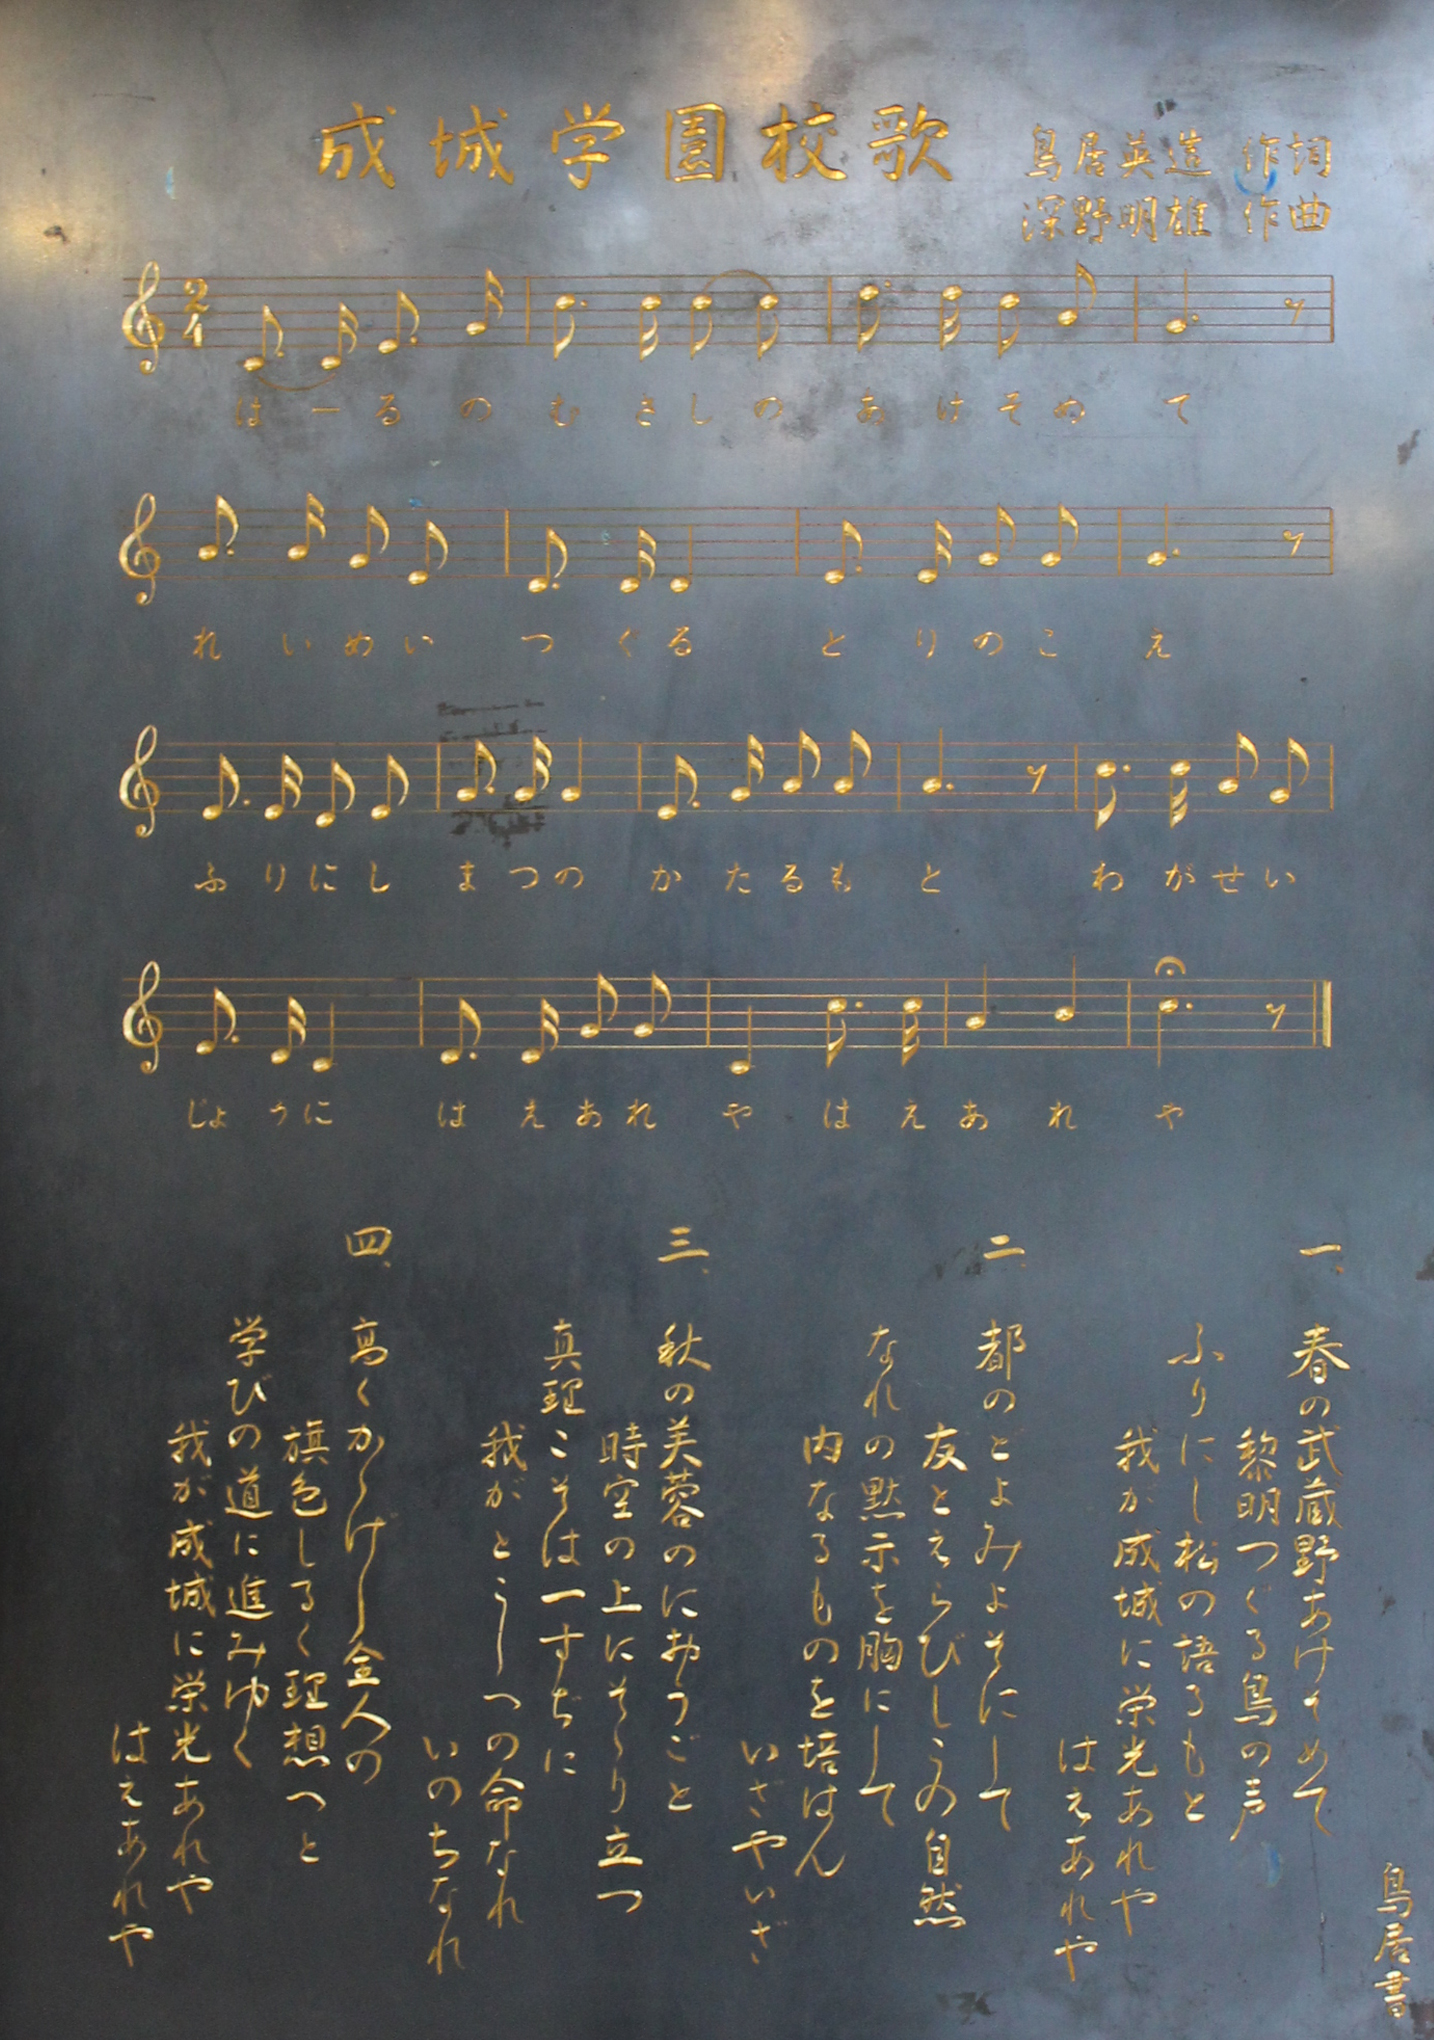 成城学園校歌
鳥居英造 作詞
深野明雄 作曲
はーるのむさしのあけそめて
れいめいつぐるとりのこえ
ふりにしまつのかたるもとわがせい
じょうにはえあれやはえあれや
一、春の武蔵野あけそめて
黎明つぐる鳥の声
ふりにし松の語るもと
我が成城に栄光あれや
はえあれや
二、都のどよみよそにして
友とえらびしこの自然
なれの黙示を胸にして
内なるものを培はん
いざやいざ
三、秋の芙蓉のにおうごと
時空の上にそゝり立つ
真理こそは一すぢに
我がとこしへの命なれ
いのちなれ
四、高くかゝげし全人の
旗色しるく理想へと
学びの道に進みゆく
我が成城に栄光あれや
はえあれや
鳥居書